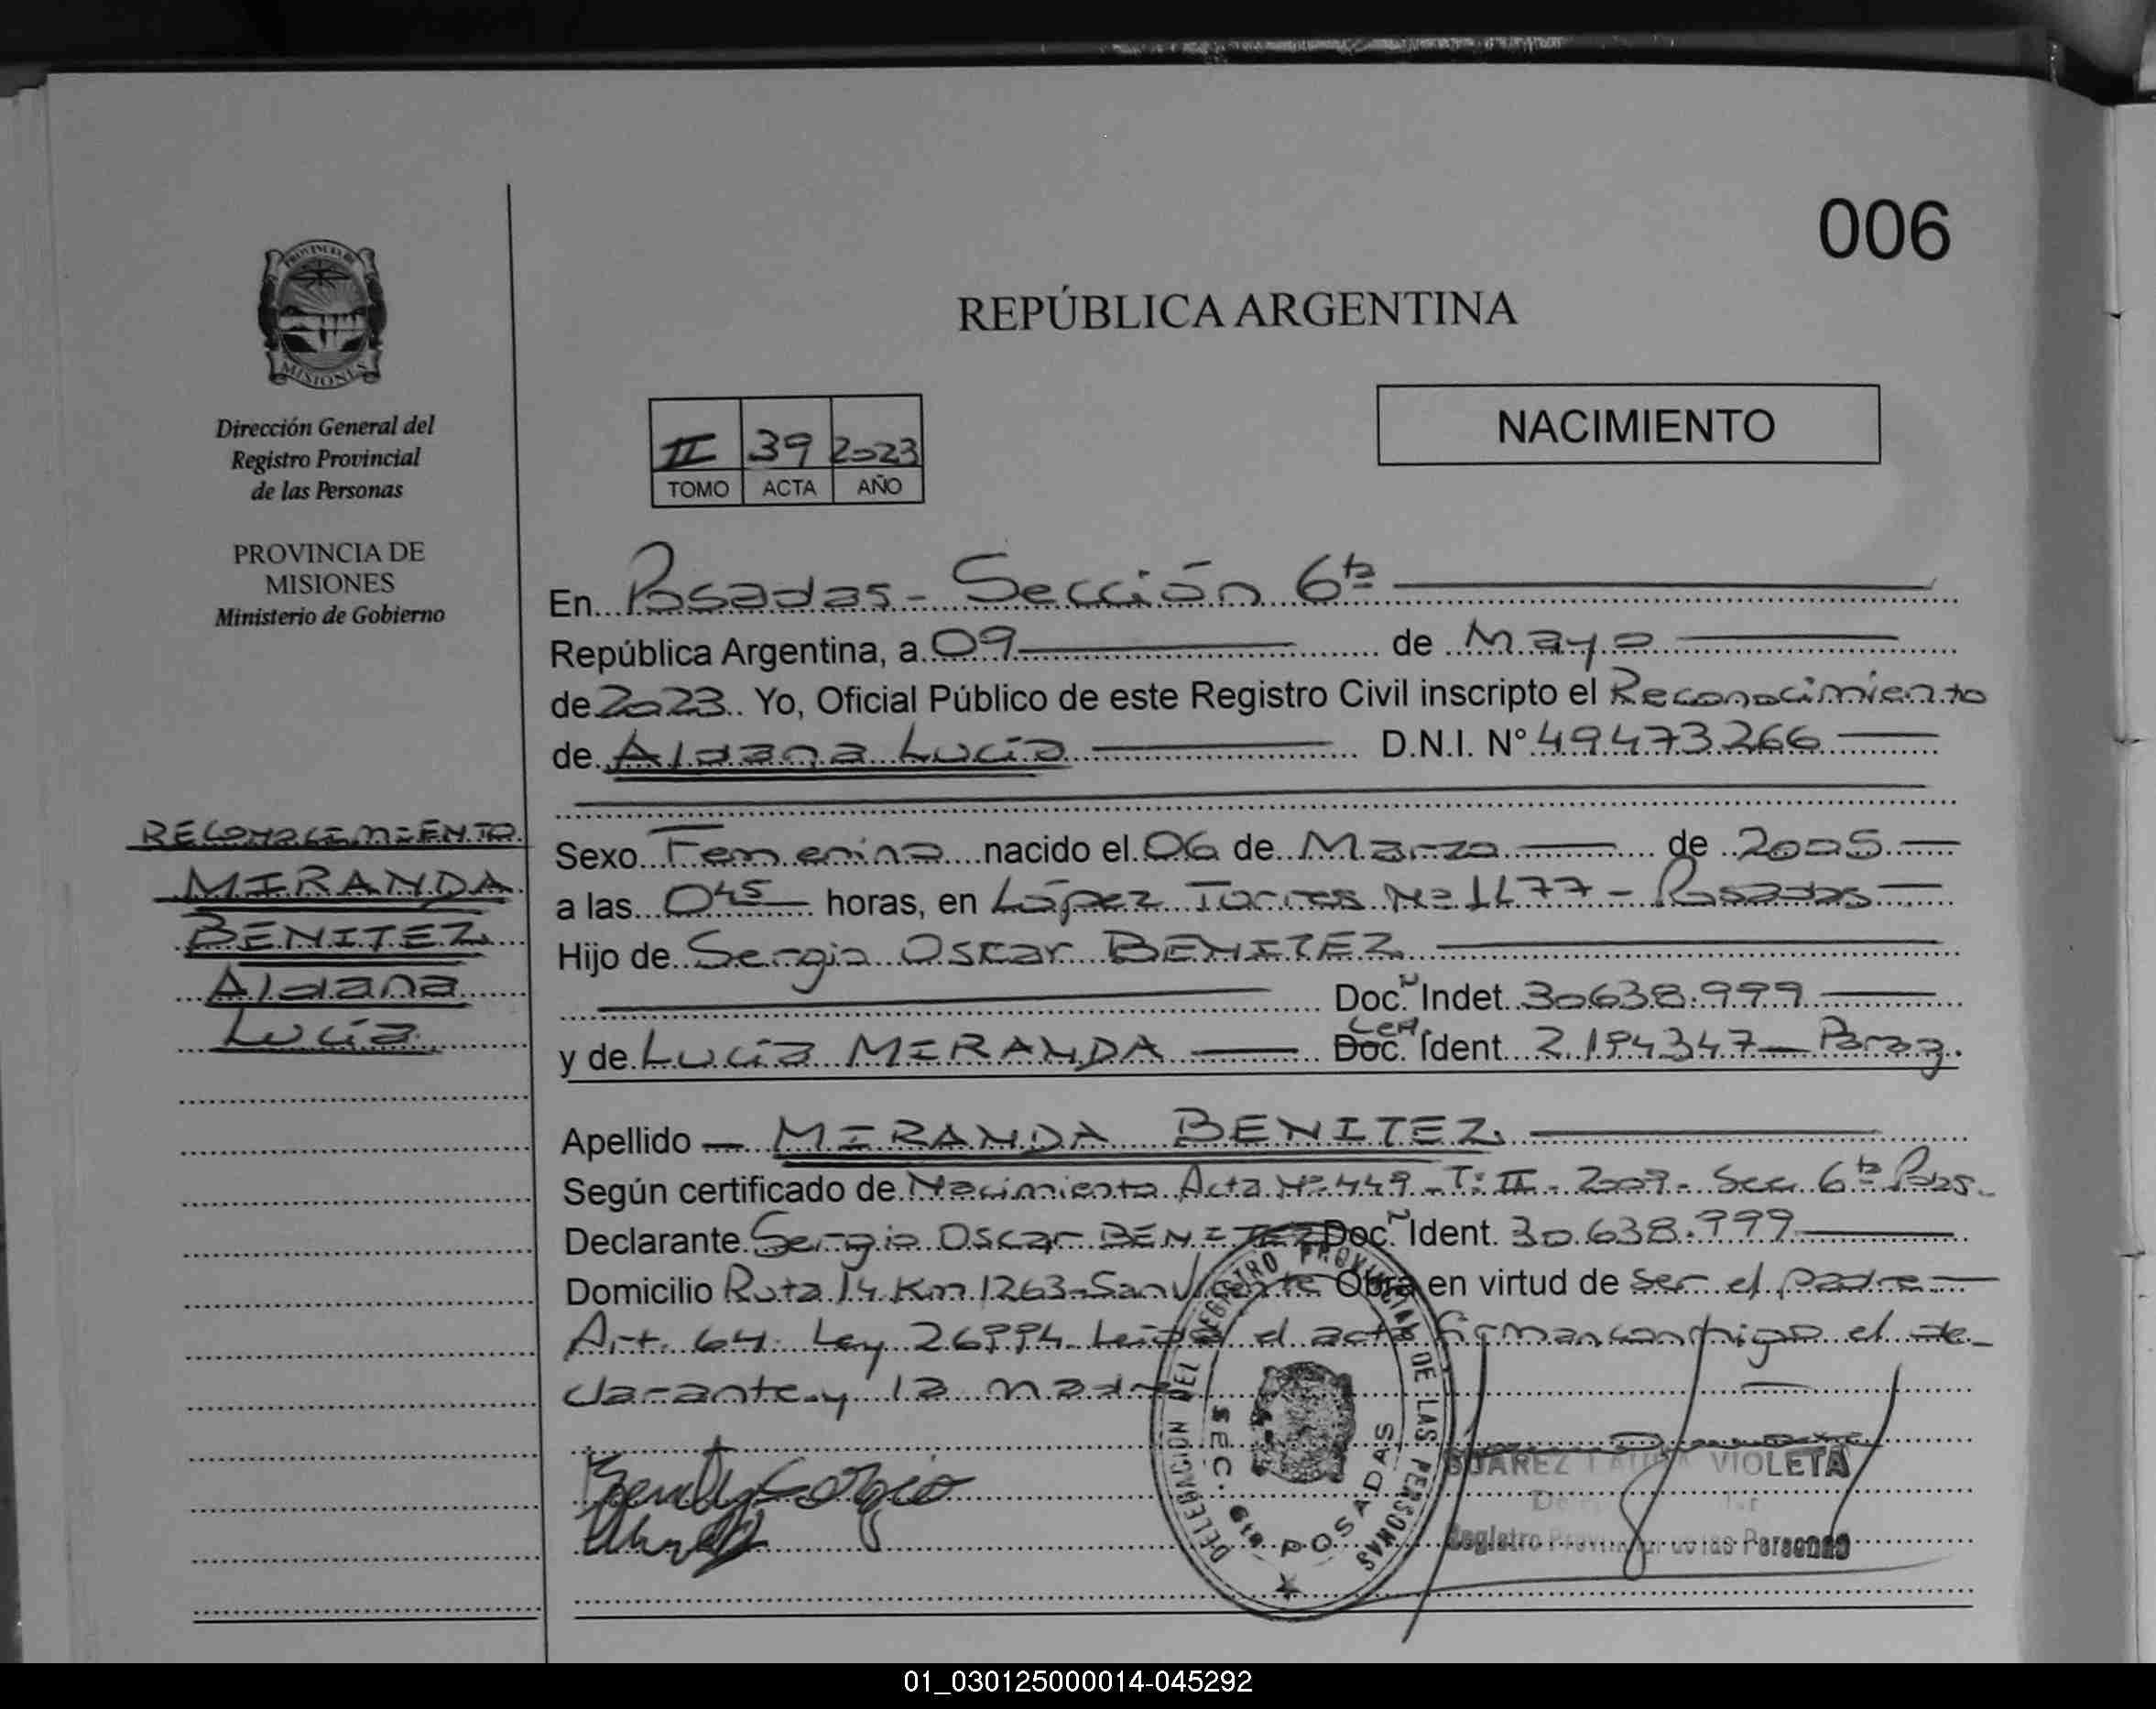 006
REPÚBLICA ARGENTINA
PROVINCIA DE
MISIONES
Dirección General del
Registro Provincial
de las Personas
PROVINCIA DE
MISIONES
Ministerio de Gobierno
II 39 2023
TOMO ACTA AÑO
NACIMIENTO
En Posadas - Sección 6ta
República Argentina, a 09 de Mayo
de 2023. Yo, Oficial Público de este Registro Civil inscripto el Reconocimiento
de Aldana Lucía D.N.I. N° 49473266
RECONOCIMIENTO
MIRANDA
BENITEZ
Aldana
Lucía
Sexo Femenino nacido el 06 de Marzo de 2005
a las 0 45 horas, en López Torres Nº 1177 - Posadas
Hijo de Sergio Oscar BENITEZ
Doc. Indet. 30638.999
y de Lucía MIRANDA Doc. Ced. Ident. 2.194347 - Parag.
Apellido — MIRANDA BENITEZ
Según certificado de Nacimiento Acta Nº 449 - T: II - 2009 - Sec. 6ta Pdas.
Declarante Sergio Oscar BENITEZ Doc. Ident. 30.638.999
Domicilio Ruta 14 Km 1263 - San Vicente Obra en virtud de ser el padre
Art. 64. Ley 26994. Leída el acta firman conmigo el de-
clarante y la madre
DELEGACIÓN DEL REGISTRO PROVINCIAL DE LAS PERSONAS
SEC. 6ta POSADAS
SUAREZ LAURA VIOLETA
Registro Provincial de las Personas
01_030125000014-045292